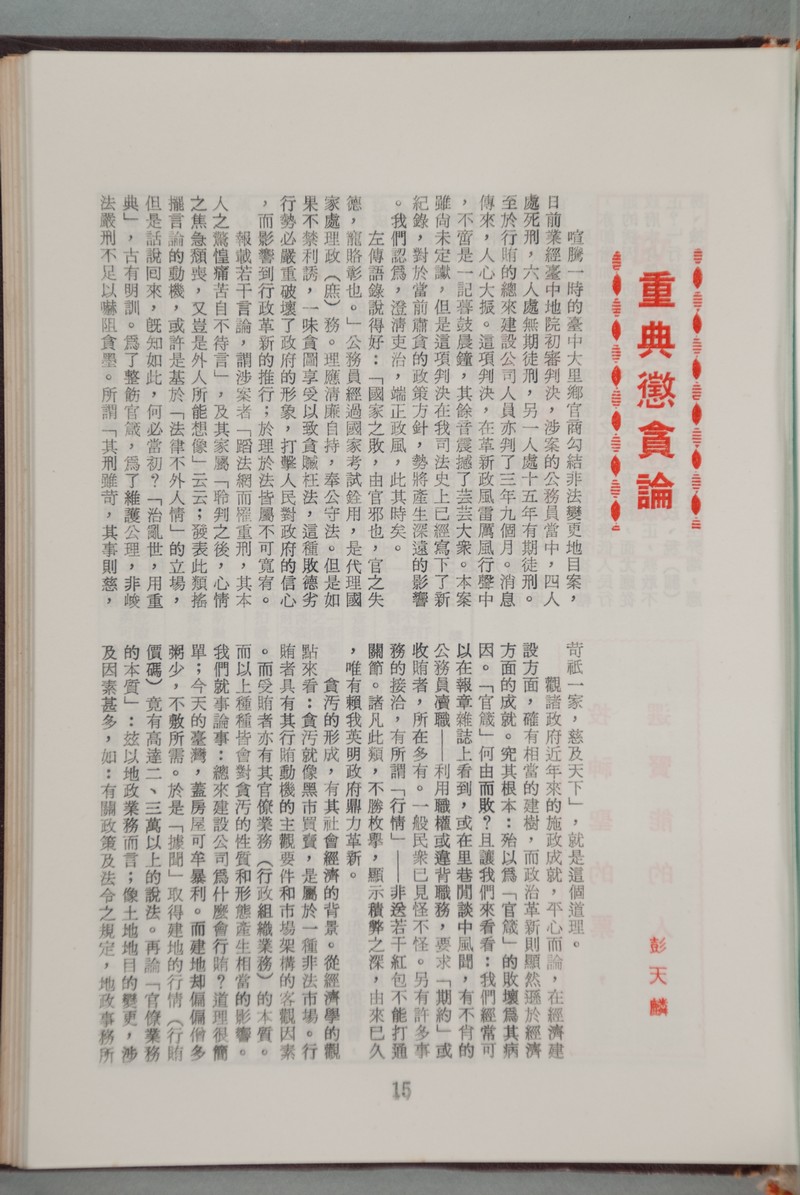 重典懲貪論
彭天麟
喧騰一時的臺中大里鄉官商勾結非法變更地目案，
日前業經臺中地院初審判決，涉案的公務員當中，四人
處死刑，六人處無期徒刑，另一人處十五年有期徒刑。
至於行賄的總來建設公司人員亦判了三年九個月。消息
傳來，人心大振。這項判決，在革新政風雷厲風行聲中
，不啻是一記暮鼓晨鐘，其餘音震撼了芸芸大衆。本案
雖尚未定讞，但是這項判決在我司法史上已經寫下了新
紀錄，對於當前肅貪的政策方針，勢將產生深遠的影響
。我們認爲，澄清吏治，端正政風，此其時矣。
左傳語錄說得好：「國家之敗，由官邪也，官之失
德，寵賂彰也。」公務員經過國家考試銓用，是代理國
家處理政（庶）務。理應清廉自持，奉公守法。但是如
果不禁利誘，一味貪圖享受以致貪贓枉法，這種敗德劣
行勢必嚴重破壞了政府的形象，打擊人民對政府的信心
，而影響到行政革新的推行；於理於法皆屬不可寬宥。
報載若干言論，謂涉案者「蹈法網而罹重刑，其本
人之驚惶痛苦自不待言」，及其家屬「聆判之後，心情
之焦急頹喪，又豈是外人所能想像」云云；發表此類搖
擺言論的動機，或許是基於「法律不外人情」的立場，
但是話說回來，旣知如此，何必當初？「治亂世，用重
典」，古有明訓。爲了整飭官箴，爲了維護公理，非峻
法嚴刑不足以嚇阻貪墨。所謂「其刑雖苛，其事則慈，
苛祗一家，慈及天下」，就是這個道理。
觀諸政府近年來的施政成就，平心而論，在經濟建
設方面，確有相當的建樹，而政治革新則顯然遜於經濟
方面的成就。究其根本：殆以爲「官箴」的敗壞爲其病
因。「官箴」何由而敗？且讓我們來看看：我們經常可
以在報章雜誌上看到，或在里巷閒談中風聞，有不肖的
公務員瀆職──利用職權或違背職務，要求「期約」或
收賄者，所在多有。一般民衆已見怪不怪。另有許多事
務的接洽，有所謂「行情」──非送若干紅包不能打通
關節。諸凡此類，不勝枚擧，顯示積弊之深，由來已久
，唯有賴我英明政府鼎力革新。
貪汚的形成，有其社會經濟的背景。從經濟學的觀
點來看：貪汚就像黑市買賣，是屬於一種非法市場。行
賄者具有其行賄動機的主觀要件和市場架構的客觀因素
。而受賄者亦有其官僚業務（行政組織業務）的本質。
而以上種種皆會對貪汚的性質和形態產生相當的影響。
我們就事論事：總來建設公司爲什麼會行賄？道理很簡
單；今天的臺灣，蓋房屋可牟暴利。而建地却偏偏僧多
粥少，不敷所需。於是「據聞」取得建地的行情（行賄
價碼）竟有高達二、三萬以上的說法。再論「官僚業務
的本質」：玆以地政業務而言；像土地地目的變更，涉
及因素甚多，如：有關政策及法令之規定，地政事務所
15